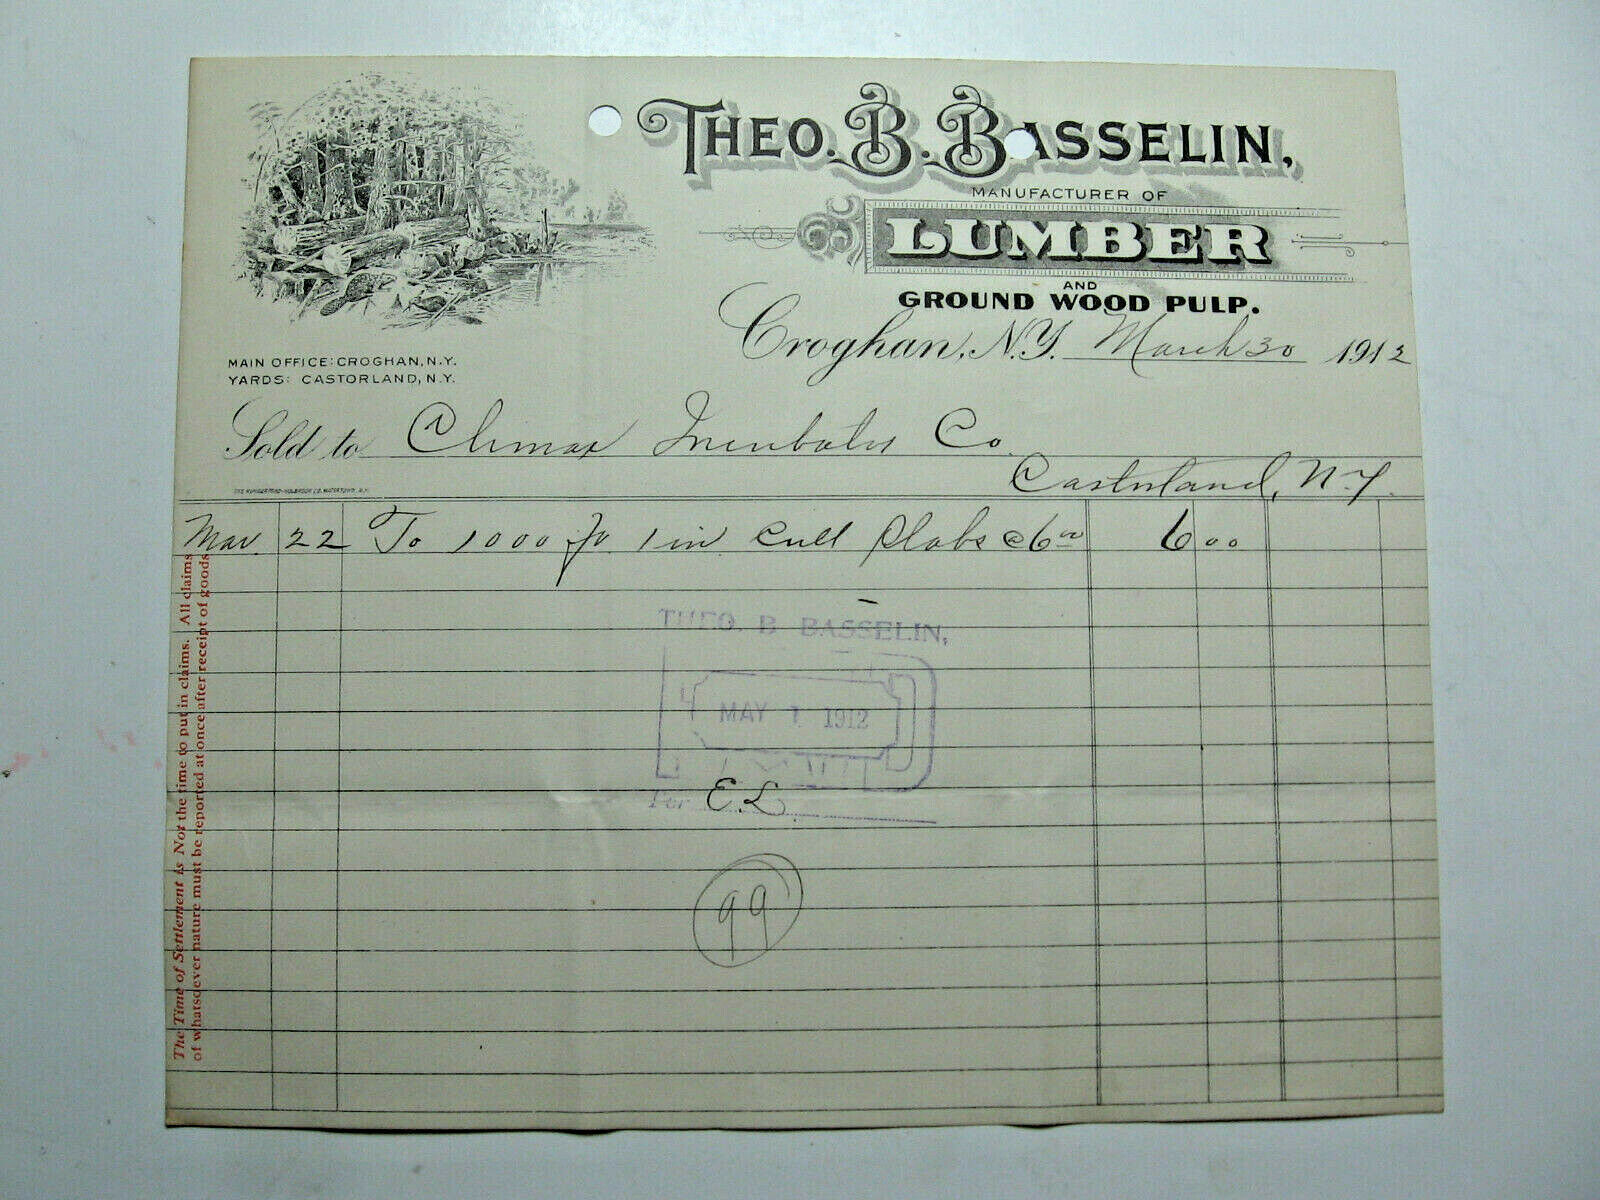 THEO. B. BASSELIN,
MANUFACTURER OF
LUMBER
AND
GROUND WOOD PULP.
Croghan, N.Y. March 30 1912
MAIN OFFICE: CROGHAN, N.Y.
YARDS: CASTORLAND, N.Y.
Sold to Climax Incubator Co
Castorland, N-Y.
Mar. 22 To 1000 ft. 1 in Cull Slabs @ 6 00 6 00
The Time of Settlement is Not the time to put in claims. All claims
of whatsoever nature must be reported at once after receipt of goods
THEO. B BASSELIN,
MAY 1 1912
Per E.L.
99